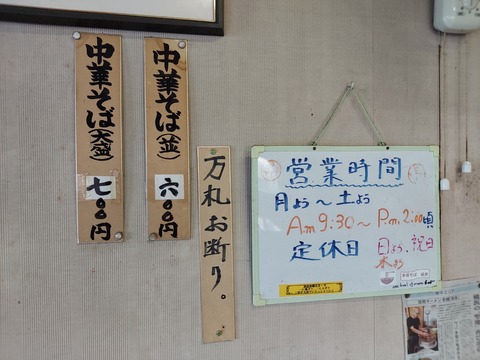 中華そば(大盛)
七〇〇円
中華そば(並)
六〇〇円
万札お断り。
営業時間
月よう~土よう
Am 9:30~Pm.2:00頃
定休日
日よう、祝日
木よう